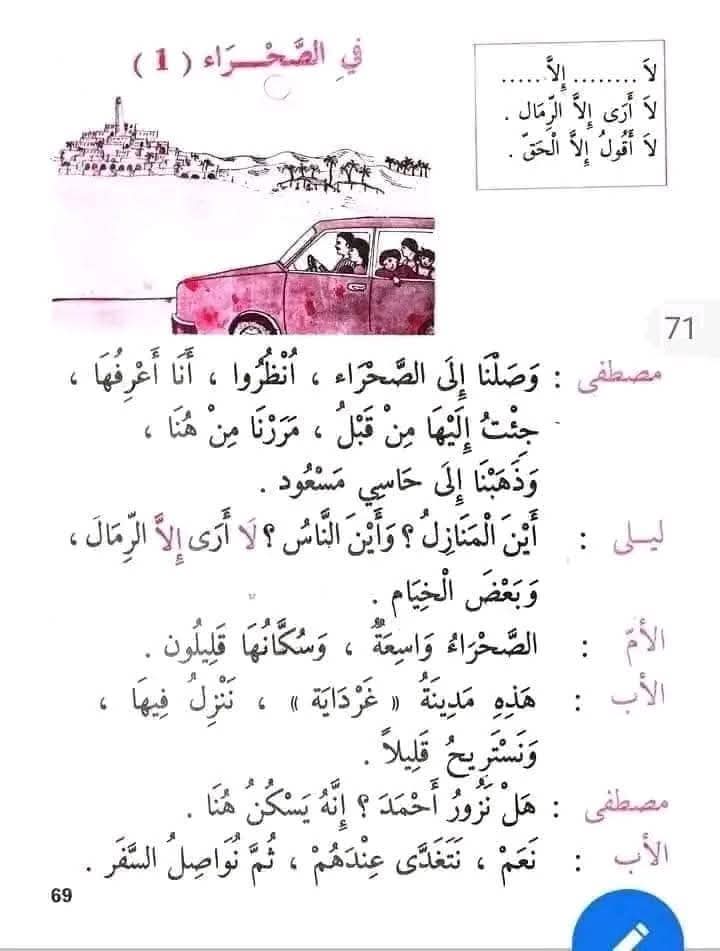 فِي الصَّحْـــرَاء ( 1 )
لاَ ........ إِلاَّ .....
لاَ أَرَى إِلاَّ الرِّمَال .
لاَ أَقُولُ إِلاَّ الْحَقّ .
71
مصطفى : وَصَلْنَا إِلَى الصَّحْرَاء ، اُنْظُرُوا ، أَنَا أَعْرِفُهَا ،
جِئْتُ إِلَيْهَا مِنْ قَبْلُ ، مَرَرْنَا مِنْ هُنَا ،
وَذَهَبْنَا إِلَى حَاسِي مَسْعُود .
ليـلى : أَيْنَ الْمَنَازِلُ ؟ وَأَيْنَ النَّاسُ ؟ لَا أَرَى إِلاَّ الرِّمَالَ ،
وَبَعْضَ الْخِيَام .
الأمّ : الصَّحْرَاءُ وَاسِعَةٌ ، وَسُكَّانُهَا قَلِيلُون .
الأب : هَذِهِ مَدِينَةُ « غَرْدَايَة » ، نَنْزِلُ فِيهَا ،
وَنَسْتَرِيحُ قَلِيلاً .
مصطفى : هَلْ نَزُورُ أَحْمَدَ ؟ إِنَّهُ يَسْكُنُ هُنَا .
الأب : نَعَمْ ، نَتَغَدَّى عِنْدَهُمْ ، ثُمَّ نُوَاصِلُ السَّفَر .
69